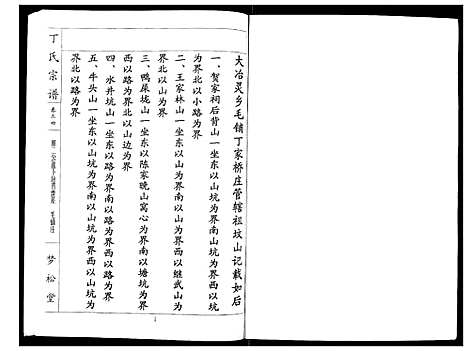 大冶灵乡毛铺丁家桥庄管辖祖坟山记载如后
一、贺家祠后背山一坐东以山坑为界南以山坑为界西以山坑
为界北以小路为界
二、王家林山一坐东以山坑为界南以山坑为界西以继武山为
界北以山为界
三、鸭屎垅山一坐东以陈家晚山窝心为界南以塘坑为界
西以路为界北以山边为界
四、水井坑山一坐东以路为界南以路为界西以路为界
五、牛头山一坐东以山坑为界南以山坑为界西以山坑为
界北以路为界
丁氏宗谱
卷之四
梦松堂